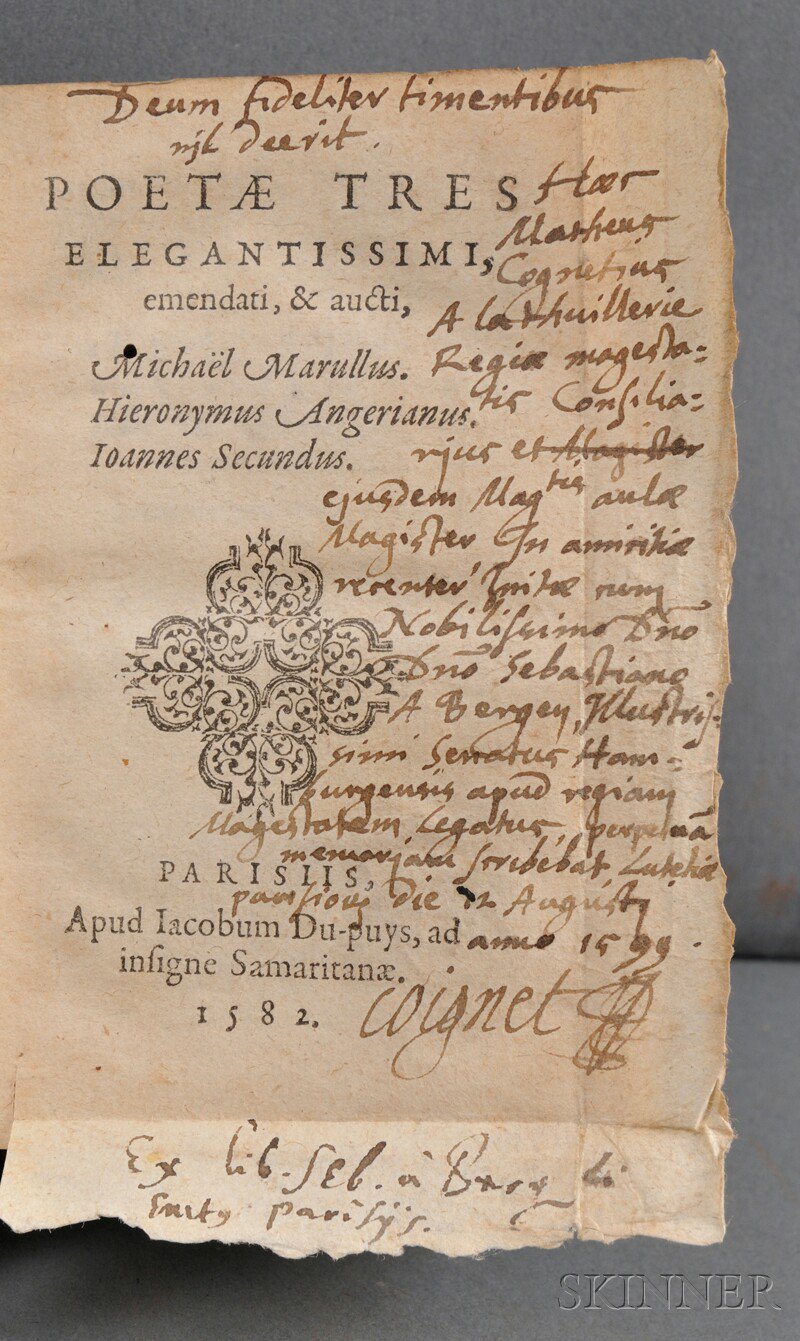 Deum fideliter timentibus
njl deerit.
POETÆ TRES
ELEGANTISSIMI,
emendati, & aucti,
Michaël Marullus.
Hieronymus Angerianus.
Ioannes Secundus.
Hæc
Matheus
Cognetius
A la thuillerie
Regiæ magesta-
tis Consilia-
rius et Magister
ejusdem Mag^tis aulæ
Magister In amicitiæ
recenter Initæ cum
Nobilissimo Dno
Dno Sebastiano
A Bergen, Illustris-
simi Senatus Ham-
burgensis apud regiam
Magestatem Legatus, perpetuã
memoriam scribebat Lutetiæ
parisioru die 12 Augusti
anno 1599.
PARISIIS,
Apud Iacobum Du-puys, ad
insigne Samaritanæ.
1582.
coignet
Ex lib. Seb. à
parisijs.
SKINNER